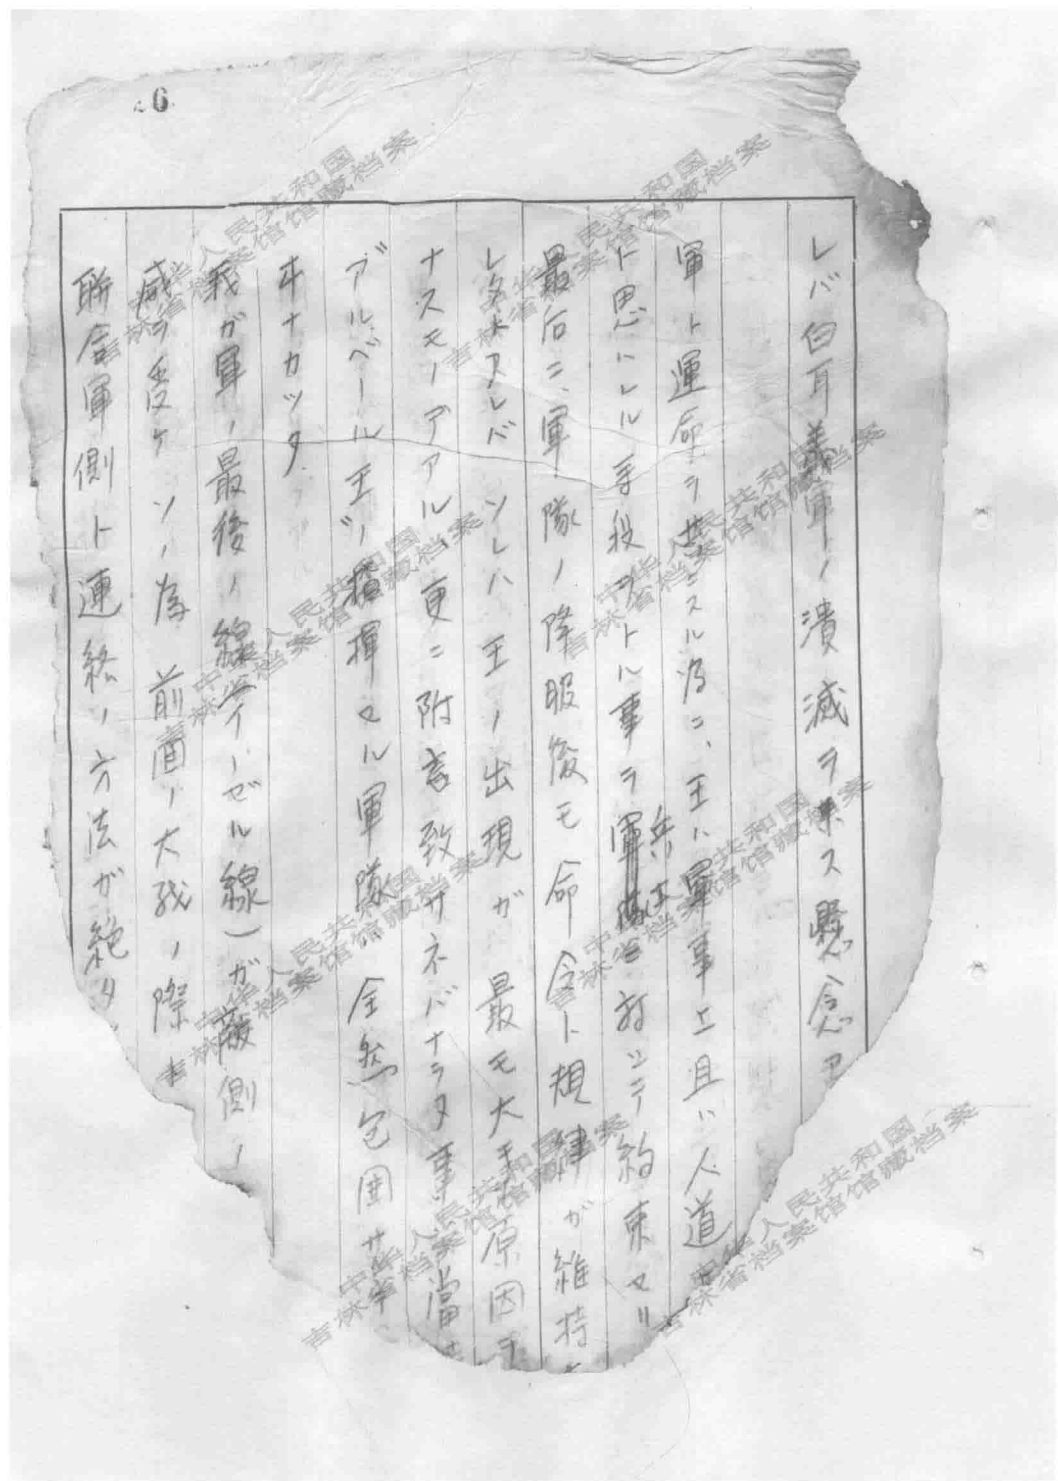 6
レバ白耳義軍ノ潰滅ヲ来ス懸念ア
軍ト運命ヲ共ニスル為ニ、王ハ軍事上且ハ人道
ト思ハレル手段ヲトル事ヲ兵士ニ対シテ約束セリ
最后ニ、軍隊ノ降服後モ命令ト規律ガ維持
レタトスレバ ソレハ王ノ出現ガ 最モ大ナル原因ヲ
ナスモノデアル、更ニ附言致サネバナラヌ事ハ當
アルベール王ノ指揮セル軍隊ハ 全然包囲サ
ヰナカツタ
我ガ軍ノ最後ノ線(イーゼル線)ガ敵側ノ
威ヲ受ケ ソノ為 前面ノ大戦ノ際
聯合軍側ト連絡ノ方法ガ絶タ
中华人民共和国
吉林省档案馆馆藏档案